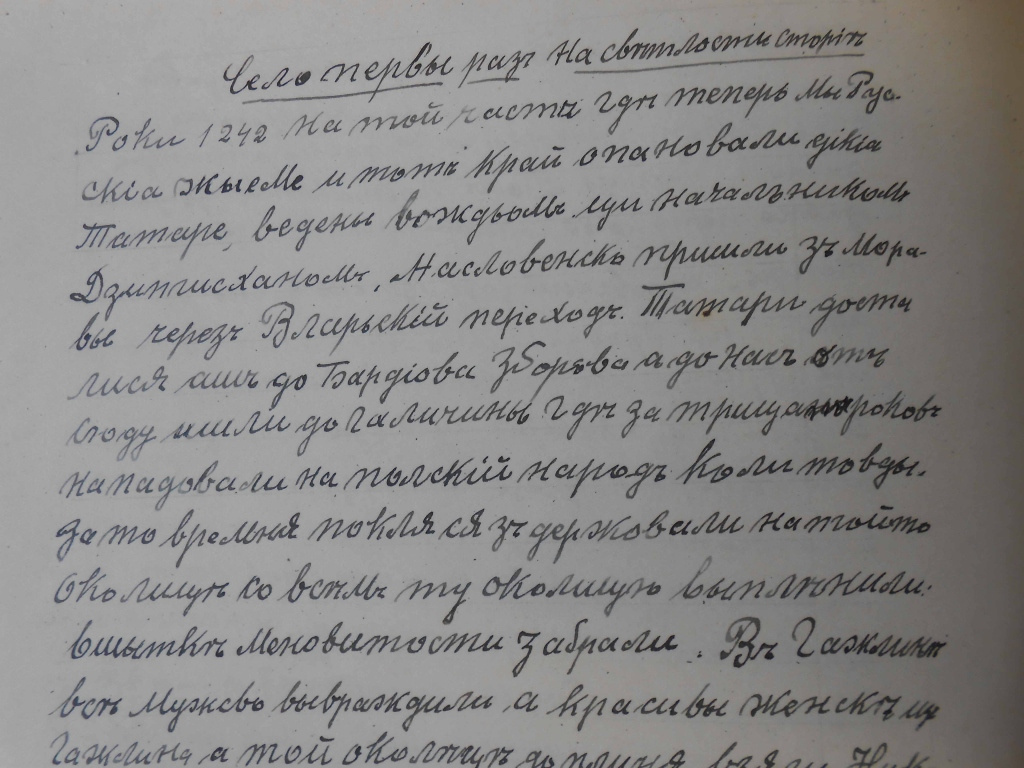 Село первы разъ на свѣтлости сторінъ
Роки 1242 на той части гдѣ теперь мы Рус-
скіа жыеме и тотъ край опановали дікіа
Татаре, ведены вождьомъ ци начальникомъ
Дзингисханомъ, Насловенско пришли зъ Мора-
вы черезъ Вларьскій переходъ. Татари доста
лися ашъ до Бардіова Зборова а до насъ отъ
сюду ишли до Галичины гдѣ за трицать роковъ
нападовали на полскій народъ коли товды.
За то время покля ся здержовали на тойто
околицѣ со всѣмъ ту околицую выплѣнили.
вшыткѣ меновитости забрали. Въ Гажлинѣ
всѣ мужсво вывраждили а красивы женскѣ из
Гажлина а той околицѣ до взяли